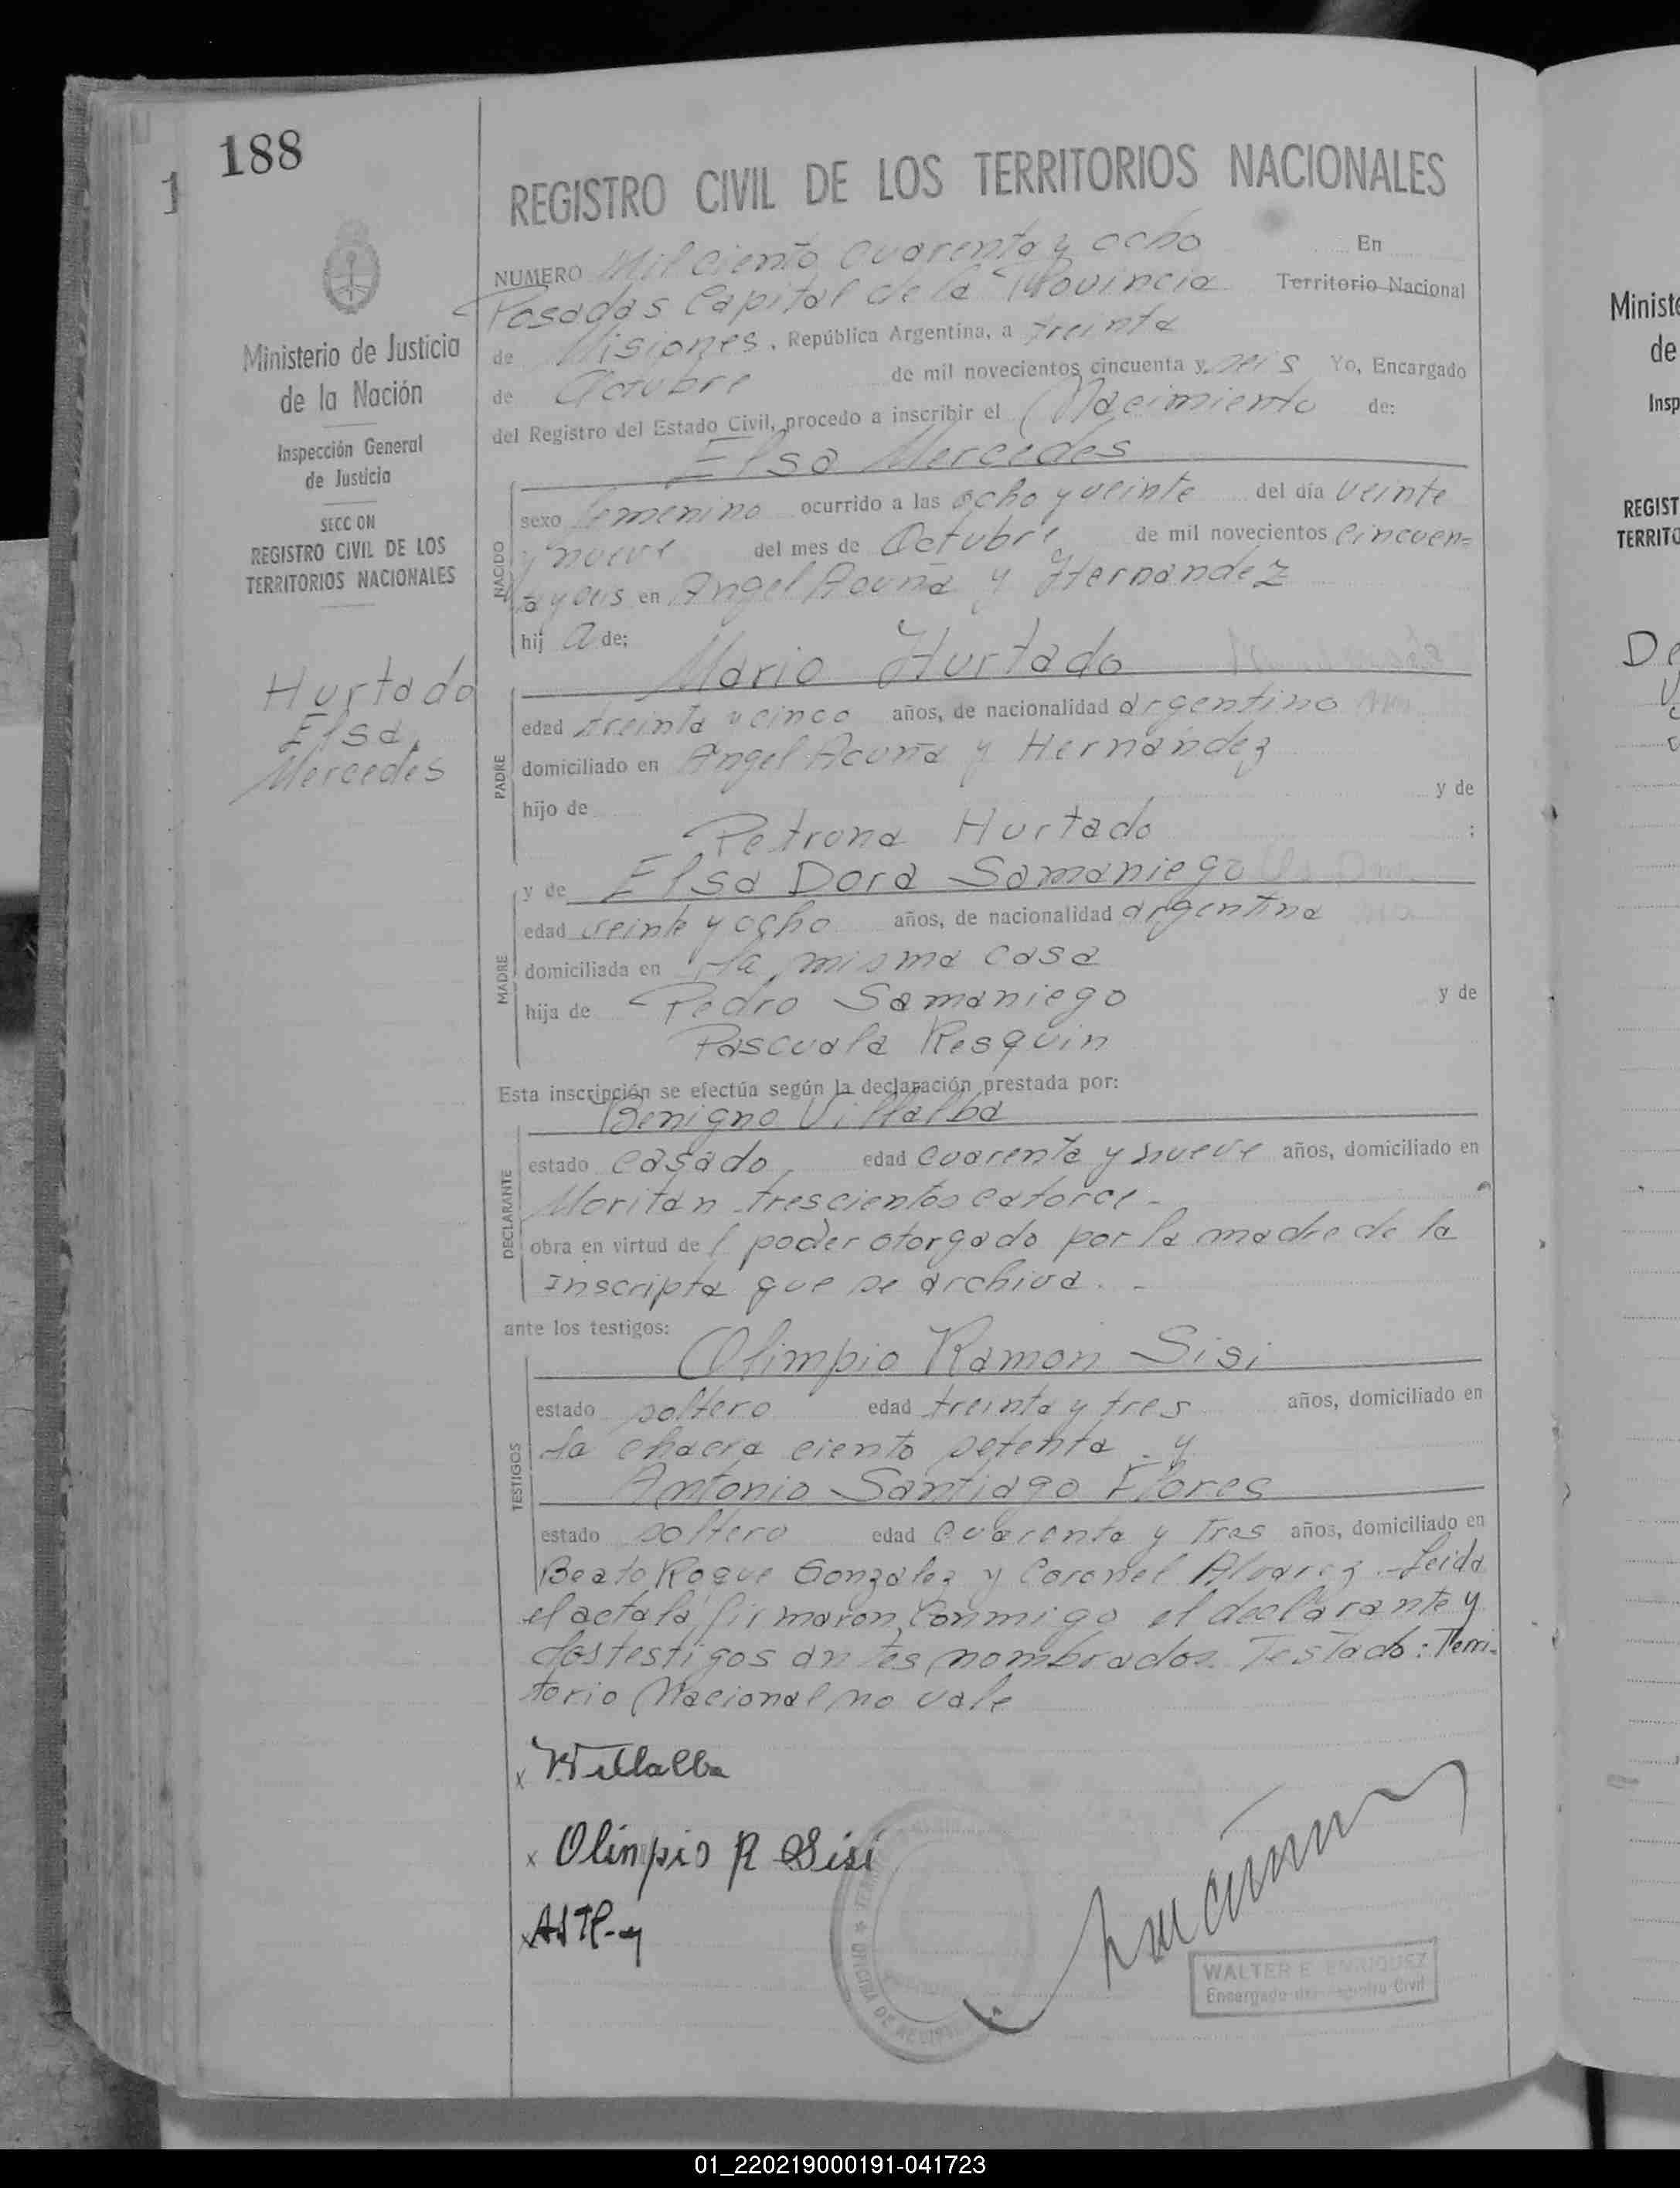 188
1
REGISTRO CIVIL DE LOS TERRITORIOS NACIONALES
NUMERO Mil ciento cuarenta y ocho En
Posadas Capital de la Provincia Territorio Nacional
de Misiones, República Argentina, a treinta
de Octubre de mil novecientos cincuenta y seis Yo, Encargado
del Registro del Estado Civil, procedo a inscribir el Nacimiento de:
Elsa Mercedes
NACIDO
sexo femenino ocurrido a las ocho y veinte del día veinte
y nueve del mes de Octubre de mil novecientos cincuen=
ta y seis en Angel Acuña y Hernandez
hij a de;
Mario Hurtado
PADRE
edad treinta y cinco años, de nacionalidad argentino
domiciliado en Angel Acuña y Hernandez
hijo de y de
Petrona Hurtado ;
MADRE
y de Elsa Dora Samaniego
edad veinte y ocho años, de nacionalidad argentina
domiciliada en la misma casa
hija de Pedro Samaniego y de
Pascuala Resquin
Esta inscripción se efectúa según la declaración prestada por:
Benigno Villalba
DECLARANTE
estado casado, edad cuarenta y nueve años, domiciliado en
Moritán trescientos catorce -
obra en virtud de l poder otorgado por la madre de la
inscripta que se archiva. -
ante los testigos:
Olimpio Ramon Sisi
TESTIGOS
estado soltero edad treinta y tres años, domiciliado en
la chacra ciento setenta y
Antonio Santiago Flores
estado soltero edad cuarenta y tres años, domiciliado en
Beato Roque Gonzalez y Coronel Alvarez. Leida
el acta la firmaron conmigo el declarante y
los testigos antes nombrados. Testado: Terri-
torio Nacional no vale
x Villalba
x Olimpio R Sisi
x
WALTER E ENRIQUEZ
Encargado del Registro Civil
OFICINA DE
Ministerio de Justicia
de la Nación
Inspección General
de Justicia
SECCION
REGISTRO CIVIL DE LOS
TERRITORIOS NACIONALES
Hurtado
Elsa
Mercedes
Ministe
de
Insp
REGIST
TERRITO
De
01_220219000191-041723